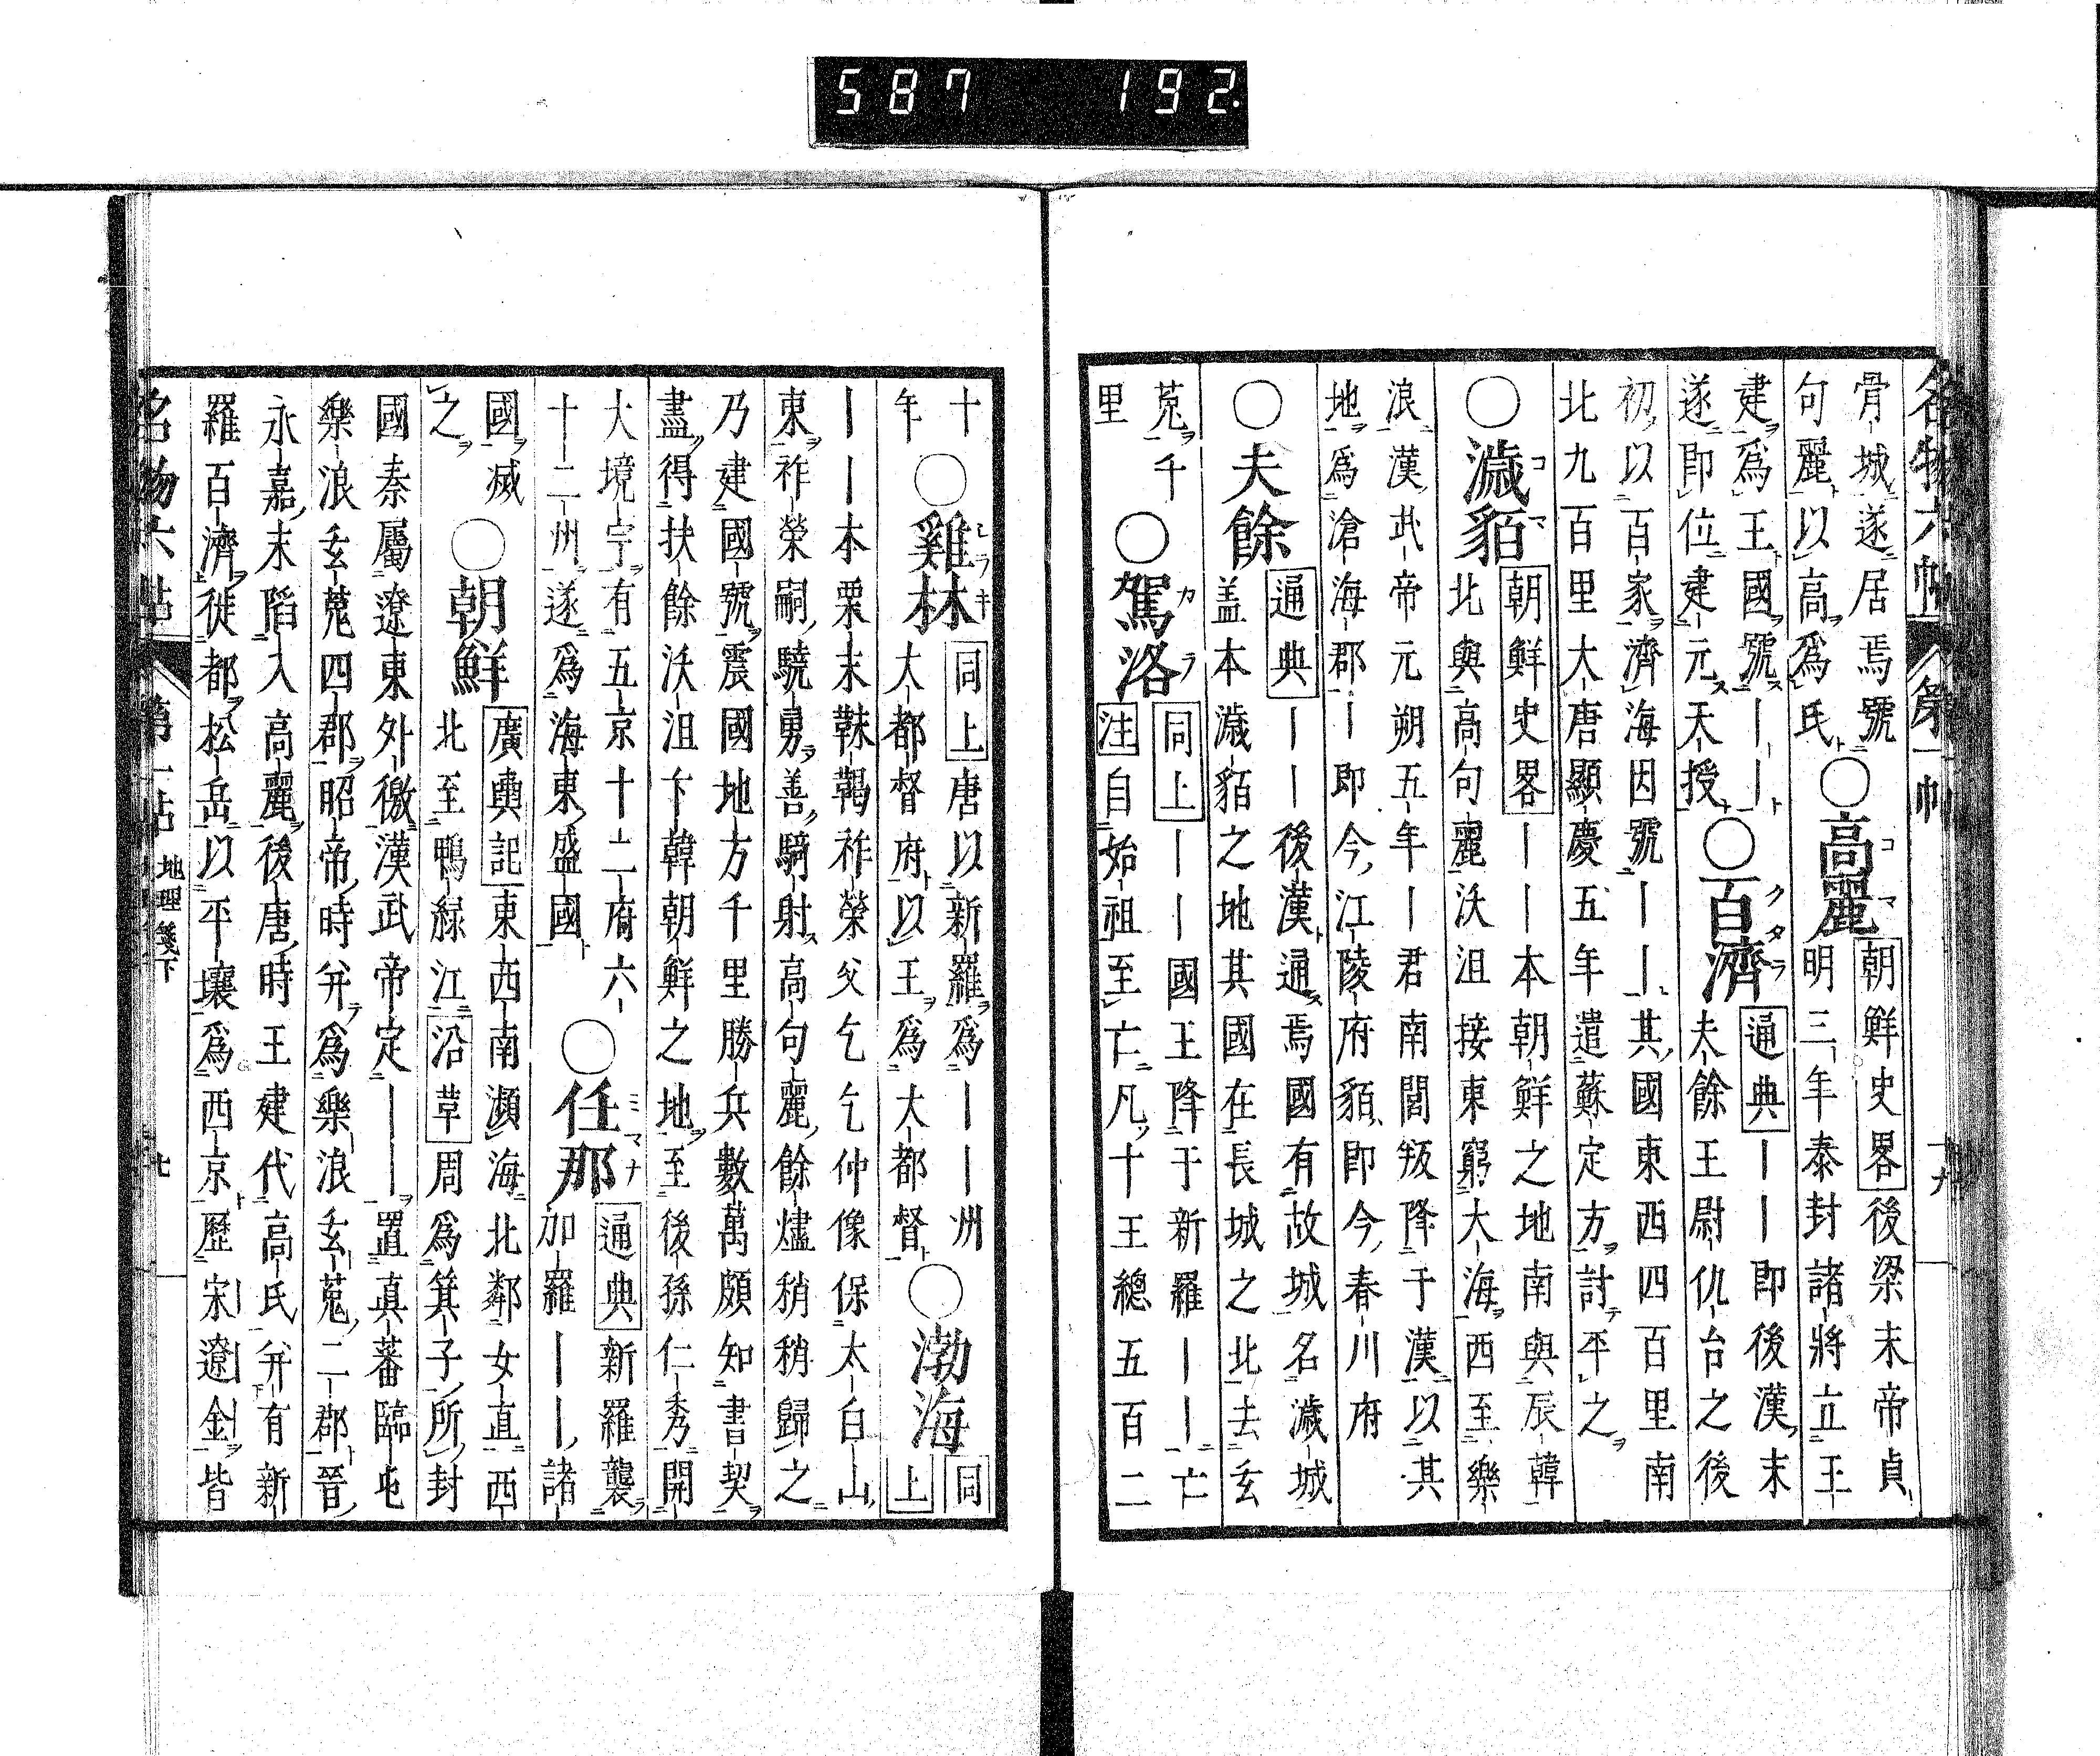 名物六帖 第一帖
骨城遂居焉號
句麗以高爲氏
○高麗
コマ
朝鮮史畧後梁末帝貞
明三年泰封諸將立王
建爲王國號――
遂即位建元天授
○百濟
クタラ
通典――即後漢末
夫餘王尉仇台之後
初以百家濟海因號――其國東西四百里南
北九百里大唐顯慶五年遣蘇定方討平之
○濊貊
コマ
朝鮮史畧――本朝鮮之地南與辰韓
北與高句麗沃沮接東窮大海西至樂
浪漢武帝元朔五年―君南閭叛降于漢以其
地爲滄海郡―即今江陵府貊即今春川府
○夫餘
通典――後漢通焉國有故城名濊城
盖本濊貊之地其國在長城之北去玄
菟千
里
○駕洛
カラ
同上――國王降于新羅――亡
注自始祖至亡凡十王總五百二
十
年
○雞林
同上唐以新羅爲――州
大都督府以王爲大都督
○渤海
同
上
――本栗末靺鞨祚榮父乞乞仲像保太白山
東祚榮嗣驍勇善騎射高句麗餘燼稍稍歸之
乃建國號震國地方千里勝兵數萬頗知書契
盡得扶餘沃沮卞韓朝鮮之地至後孫仁秀開
大境宇有五京十二府六
十二州遂爲海東盛國
○任那
ミマナ
通典新羅襲
加羅――諸
國滅
之
○朝鮮
廣輿記東西南瀕海北鄰女直西
北至鴨緑江沿革周爲箕子所封
國秦屬遼東外徼漢武帝定――置真蕃臨屯
樂浪玄菟四郡昭帝時并爲樂浪玄菟二郡晉
永嘉末陷入高麗後唐時王建代高氏并有新
羅百濟徙都松岳以平壤爲西京歷宋遼金皆
名物六帖 第一帖 地理箋下
587 192.